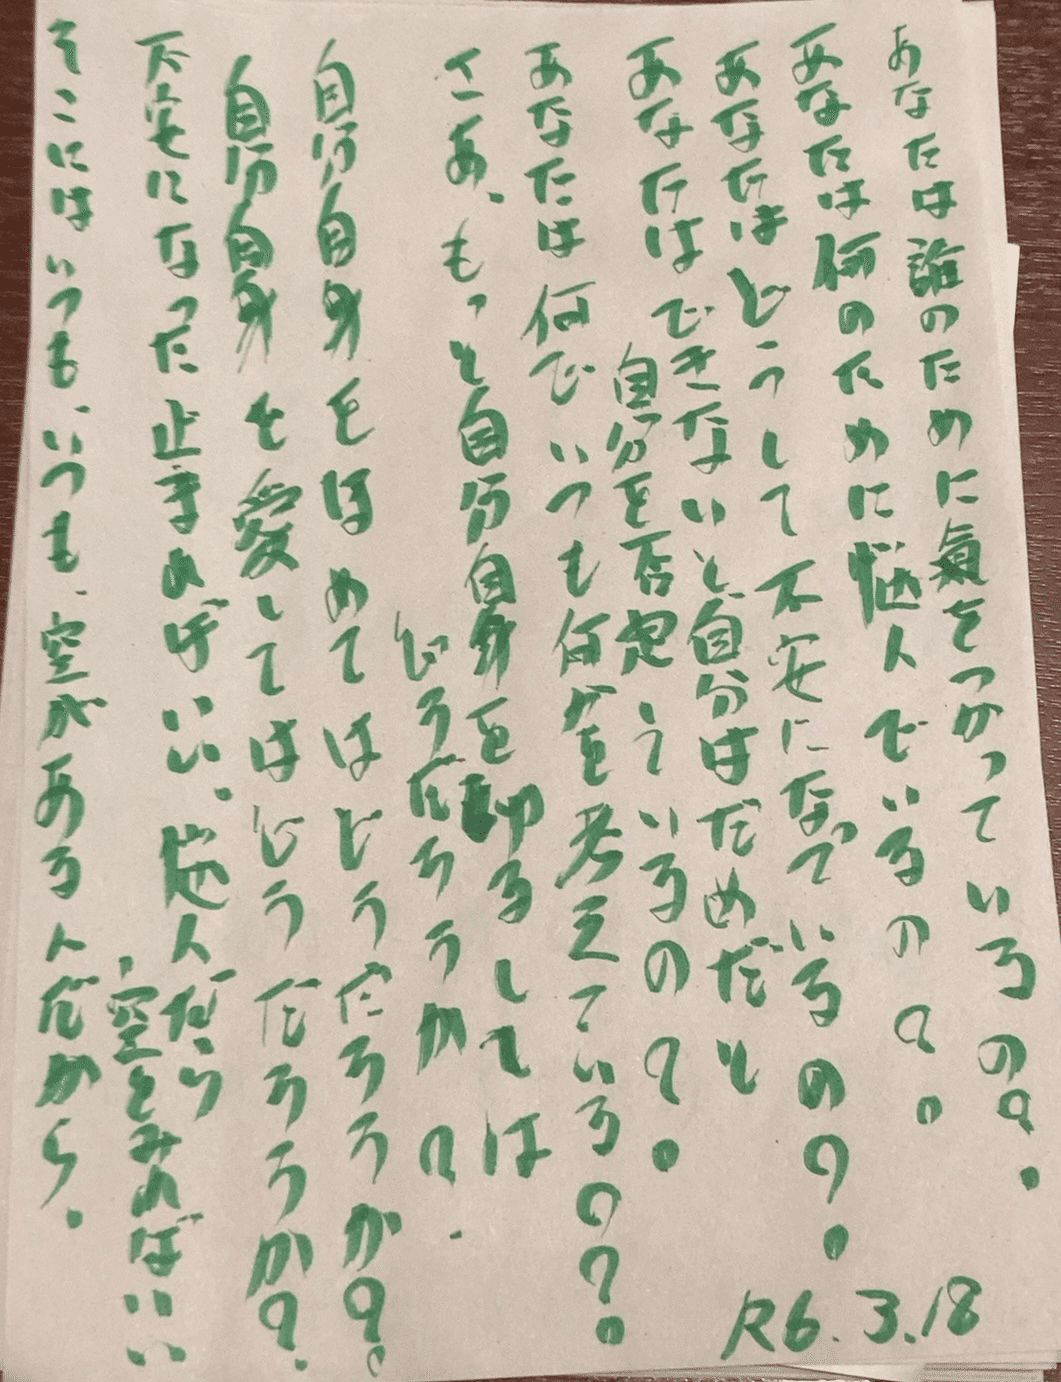 あなたは誰のために氣をつかっているの?。
あなたは何のために悩んでいるの?。
あなたはどうして不安になっているの?。
あなたはできないと自分はだめだと
自分を否定しているの?。
あなたは何でいつも何かを考えているの?。
さあ、もっと自分自身を するしては
どうだろうか?.
自分自身をほめてはどうだろうか?。
自分自身を愛してはどうだろうか?.
不安になった止まればいい。悩んだら
、空をみればいい
そこにはいつも、いつも、空があるんだから。
R6.3.18